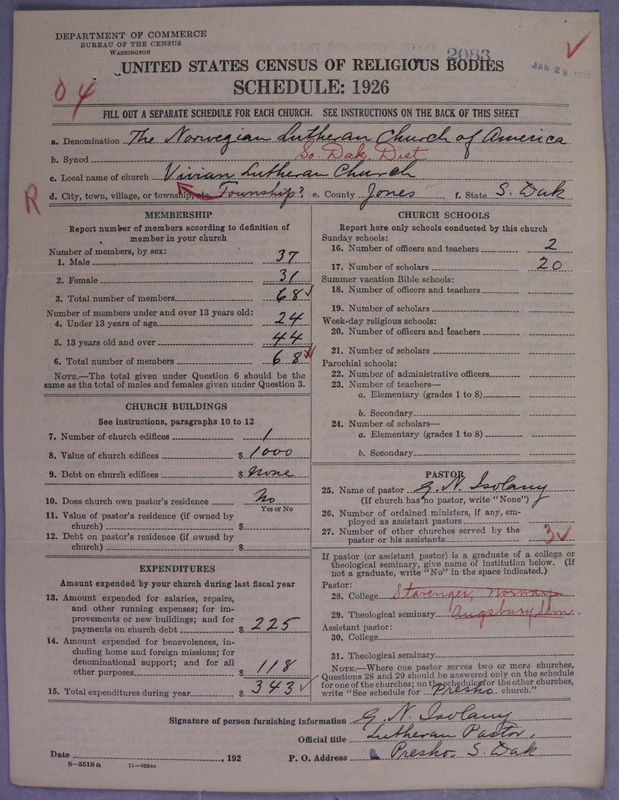 DEPARTMENT OF COMMERCE
BUREAU OF THE CENSUS
WASHINGTON
2093
JAN 29
UNITED STATES CENSUS OF RELIGIOUS BODIES
SCHEDULE: 1926
04
FILL OUT A SEPARATE SCHEDULE FOR EACH CHURCH. SEE INSTRUCTIONS ON THE BACK OF THIS SHEET
a. Denomination The Norwegian Lutheran Church of America
b. Synod So. Dak. Dist.
c. Local name of church Vivian Lutheran Church
R
d. City, town, village, or township, etc. Township? e. County Jones f. State S. Dak
MEMBERSHIP
Report number of members according to definition of
member in your church
Number of members, by sex:
1. Male 37
2. Female 31
3. Total number of members 68
Number of members under and over 13 years old:
4. Under 13 years of age 24
5. 13 years old and over 44
6. Total number of members 68
NOTE.—The total given under Question 6 should be
same as the total of males and females given under Question 3.
CHURCH BUILDINGS
See instructions, paragraphs 10 to 12
7. Number of church edifices 1
8. Value of church edifices $ 1000
9. Debt on church edifices $ None
10. Does church own pastor's residence No
Yes or No
11. Value of pastor's residence (if owned by
church) $
12. Debt on pastor's residence (if owned by
church) $
EXPENDITURES
Amount expended by your church during last fiscal year
13. Amount expended for salaries, repairs,
and other running expenses; for im-
provements or new buildings; and for
payments on church debt $ 225
14. Amount expended for benevolences, in-
cluding home and foreign missions; for
denominational support; and for all
other purposes $ 118
15. Total expenditures during year $ 343
CHURCH SCHOOLS
Report here only schools conducted by this church
Sunday schools:
16. Number of officers and teachers 2
17. Number of scholars 20
Summer vacation Bible schools:
18. Number of officers and teachers
19. Number of scholars
Week-day religious schools:
20. Number of officers and teachers
21. Number of scholars
Parochial schools:
22. Number of administrative officers
23. Number of teachers—
a. Elementary (grades 1 to 8)
b. Secondary
24. Number of scholars—
a. Elementary (grades 1 to 8)
b. Secondary
PASTOR
25. Name of pastor G. N. Isolany
(If church has no pastor, write "None")
26. Number of ordained ministers, if any, em-
ployed as assistant pastors
27. Number of other churches served by the
pastor or his assistants 3
If pastor (or assistant pastor) is a graduate of a college or
theological seminary, give name of institution below. (If
not a graduate, write "No" in the space indicated.)
Pastor:
28. College Stavenger, Norway
29. Theological seminary Augsburg Sem.
Assistant pastor:
30. College
31. Theological seminary
NOTE.—Where one pastor serves two or more churches,
Questions 28 and 29 should be answered only on the schedule
for one of the churches; on the schedules for the other churches,
write "See schedule for Presho church."
Signature of person furnishing information G. N. Isolany
Official title Lutheran Pastor.
Date , 192 P. O. Address Presho, S. Dak
8—5518a 11—9654